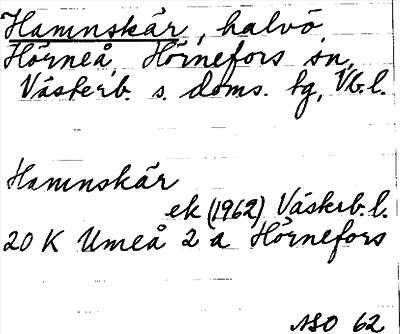 Hamnskär, halvö,
Hörneå, Hörnefors sn,
Västerb. s. doms. tg, Vb. l.
Hamnskär
ek (1962) Västerb. l.
20 K Umeå 2 a Hörnefors
NSO 62